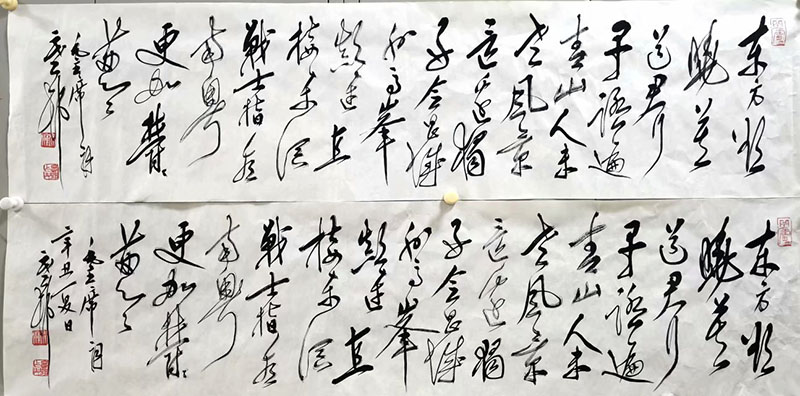 东方欲
晓莫
道君行
早踏遍
青山人未
老风景
这边独
好会昌城
外高峰
颠连直
接东溟
战士指看
南粤
更加郁郁
葱葱
毛主席词
东方欲
晓莫
道君行
早踏遍
青山人未
老风景
这边独
好会昌城
外高峰
颠连直
接东溟
战士指看
南粤
更加郁郁
葱葱
毛主席词
辛丑夏日